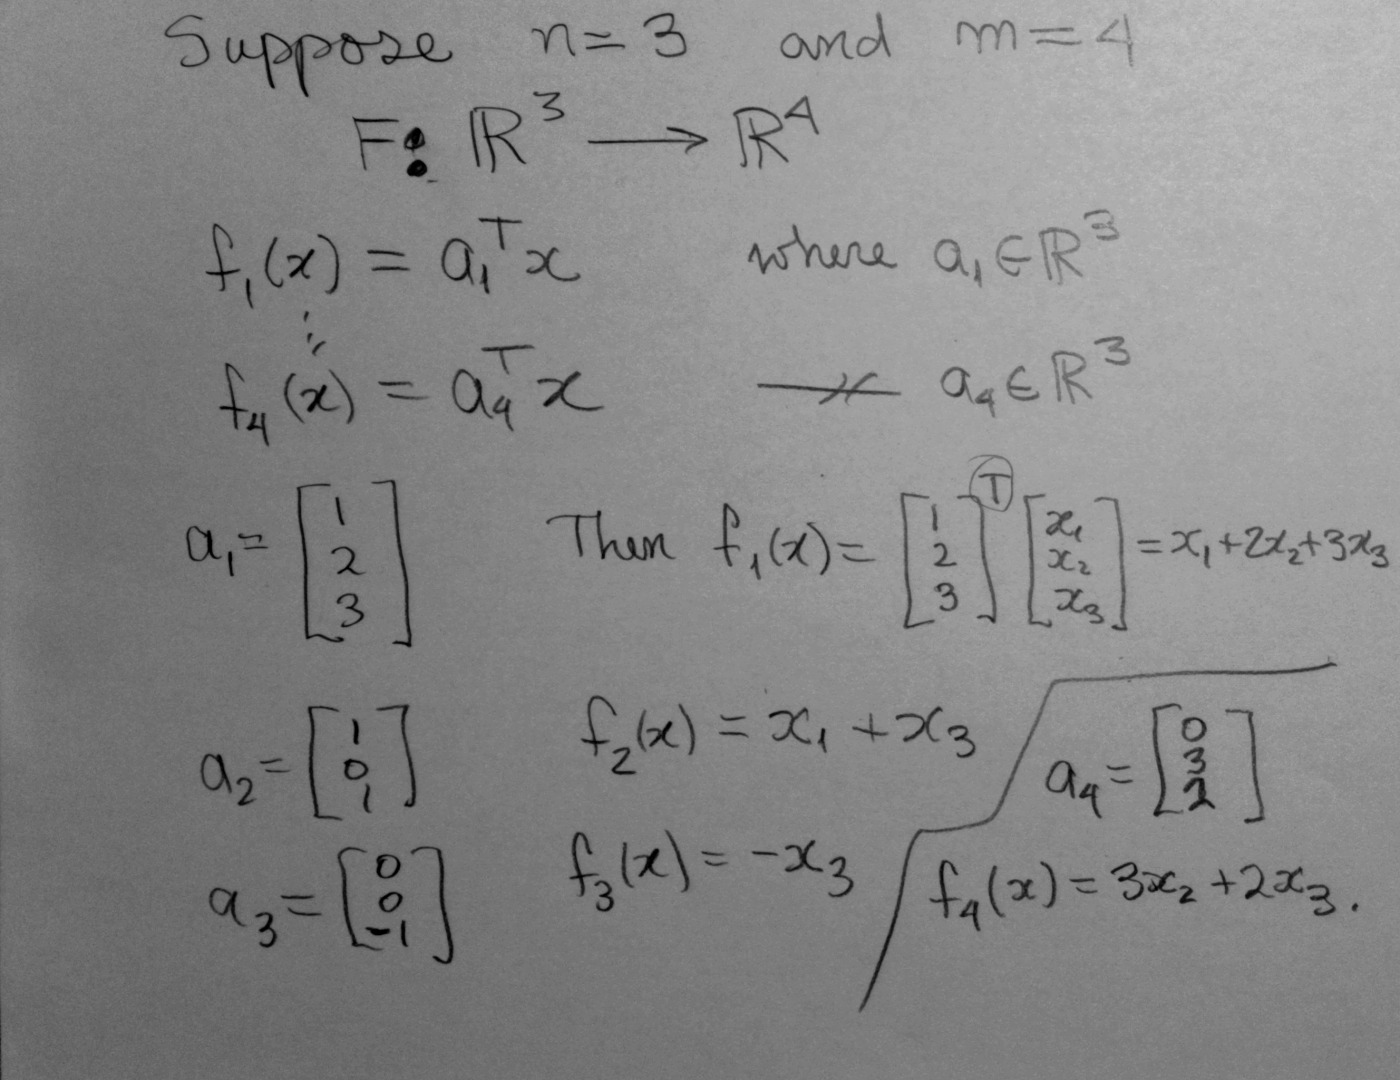 Suppose n = 3 and m = 4
F: ℝ³ ⟶ ℝ⁴
f₁(x) = a₁ᵀx where a₁ ∈ ℝ³
⋮
f₄(x) = a₄ᵀx —〃— a₄ ∈ ℝ³
a₁ = [1 2 3] Then f₁(x) = [1 2 3]ᵀ [x₁ x₂ x₃] = x₁ + 2x₂ + 3x₃
a₂ = [1 0 1] f₂(x) = x₁ + x₃
a₃ = [0 0 -1] f₃(x) = -x₃
a₄ = [0 3 2]
f₄(x) = 3x₂ + 2x₃.